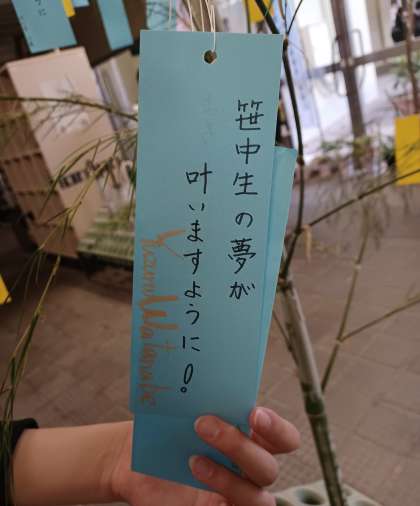 笹中生の夢が
叶いますように!
Kozumi Watanabe